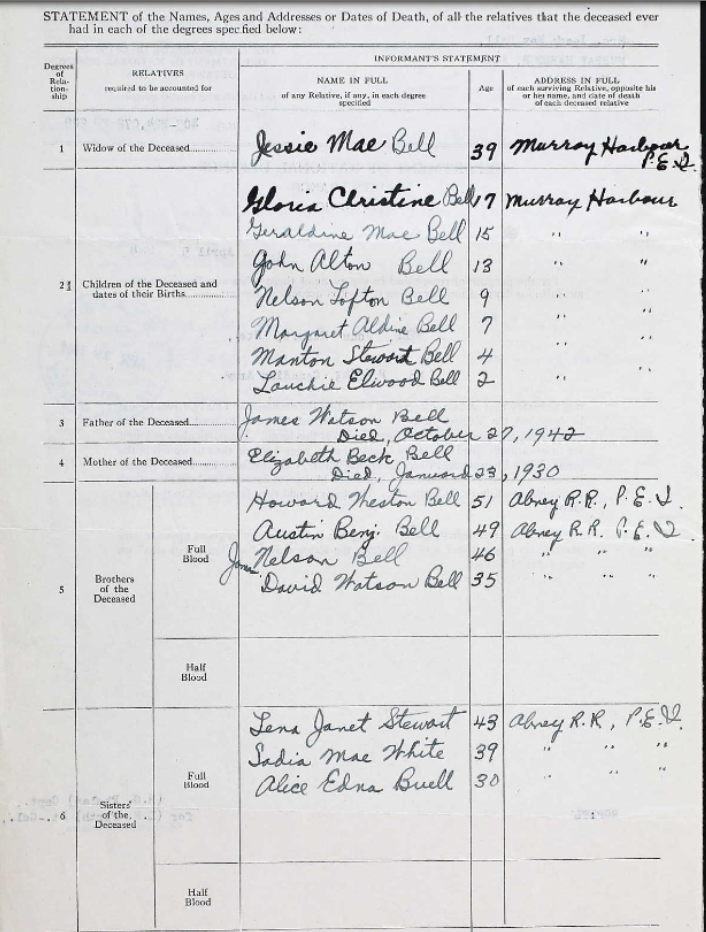 STATEMENT of the Names, Ages and Addresses or Dates of Death, of all the relatives that the deceased ever
had in each of the degrees specified below:
Degrees of Rela- tion- ship
RELATIVES
required to be accounted for
INFORMANT'S STATEMENT
NAME IN FULL
of any Relative, if any, in each degree
specified
Age
ADDRESS IN FULL
of each surviving Relative, opposite his
or her name, and date of death
of each deceased relative
1 Widow of the Deceased Jessie Mae Bell 39 Murray Harbour
P.E.I.
Gloria Christine Bell 17 Murray Harbour
Geraldine Mae Bell 15 " "
John Alton Bell 13 " "
2 Children of the Deceased and
dates of their Births
Nelson Lofton Bell 9 " "
Margaret Aldine Bell 7 " "
Manton Stewart Bell 4 " "
Lauchie Elwood Bell 2 " "
3 Father of the Deceased James Watson Bell
Died, October 27, 1942
4 Mother of the Deceased Elizabeth Beck Bell
Died, January 23, 1930
5 Brothers
of the
Deceased
Full
Blood
Howard Weston Bell 51 Abney R.R., P.E.I.
Austin Benj. Bell 49 Abney R.R. P.E.I.
James Nelson Bell 46 " " "
David Watson Bell 35 " " "
Half
Blood
6 Sisters
of the
Deceased
Full
Blood
Lena Janet Stewart 43 Abney R.R, P.E.I.
Sadia Mae White 39 " " "
Alice Edna Buell 30 " " "
Half
Blood